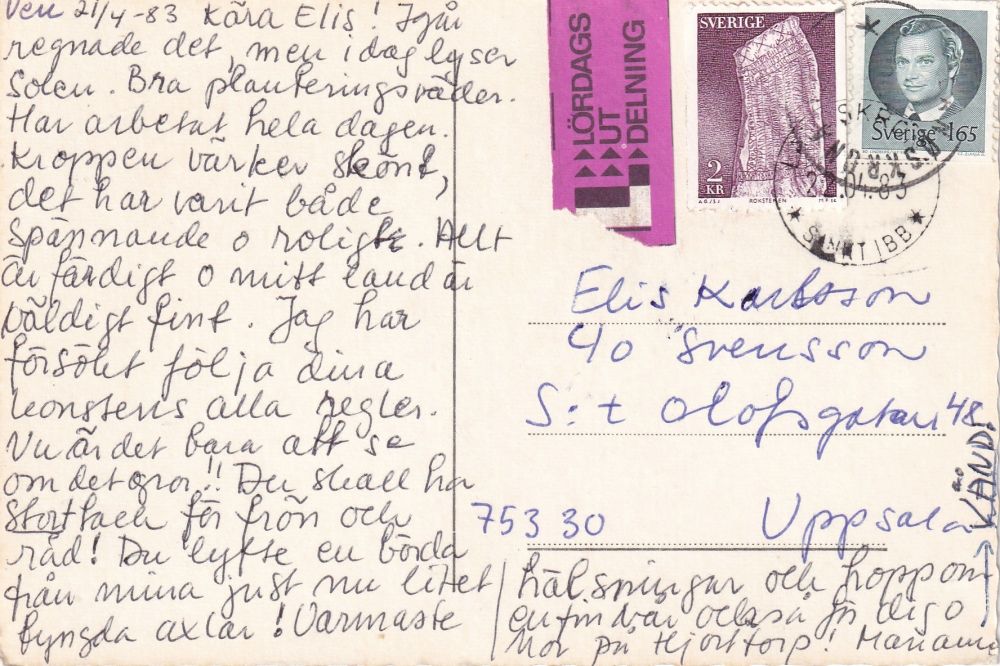 Ven 21/4-83 Kära Elis! Igår
regnade det, men idag lyser
Solen. Bra planteringsväder.
Har arbetat hela dagen.
Kroppen värker skönt,
det har varit både
spännande o roligt. Allt
är färdigt o mitt land är
väldigt fint. Jag har
försökt följa dina
konstens alla regler.
Nu är det bara att se
om det gror!! Du skall ha
Stort tack för frön och
råd! Du lyfte en börda
från mina just nu litet
tyngda axlar! Varmaste
hälsningar och hopp om
en fin vår också för dig o
Mor på Hjorttorp! Marianne
LÖRDAGS
UT
DELNING
SVERIGE
2
KR
ROKSTENEN
Sverige 165
04.83
SANKT IBB
Elis Karlsson
c/o Svensson
S:t Olofsgatan 48
75330 Uppsala
KÄND?